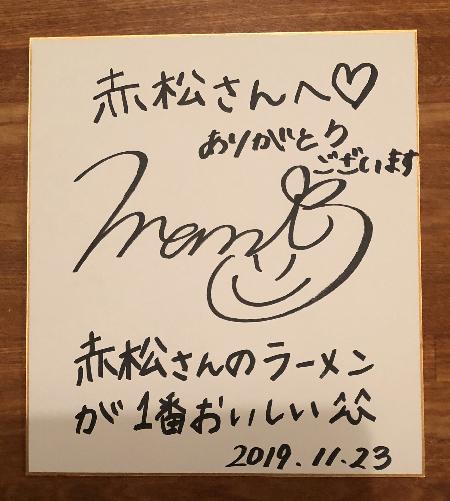 赤松さんへ♡
ありがとう
ございます
赤松さんのラーメン
が1番おいしい^^
2019.11.23